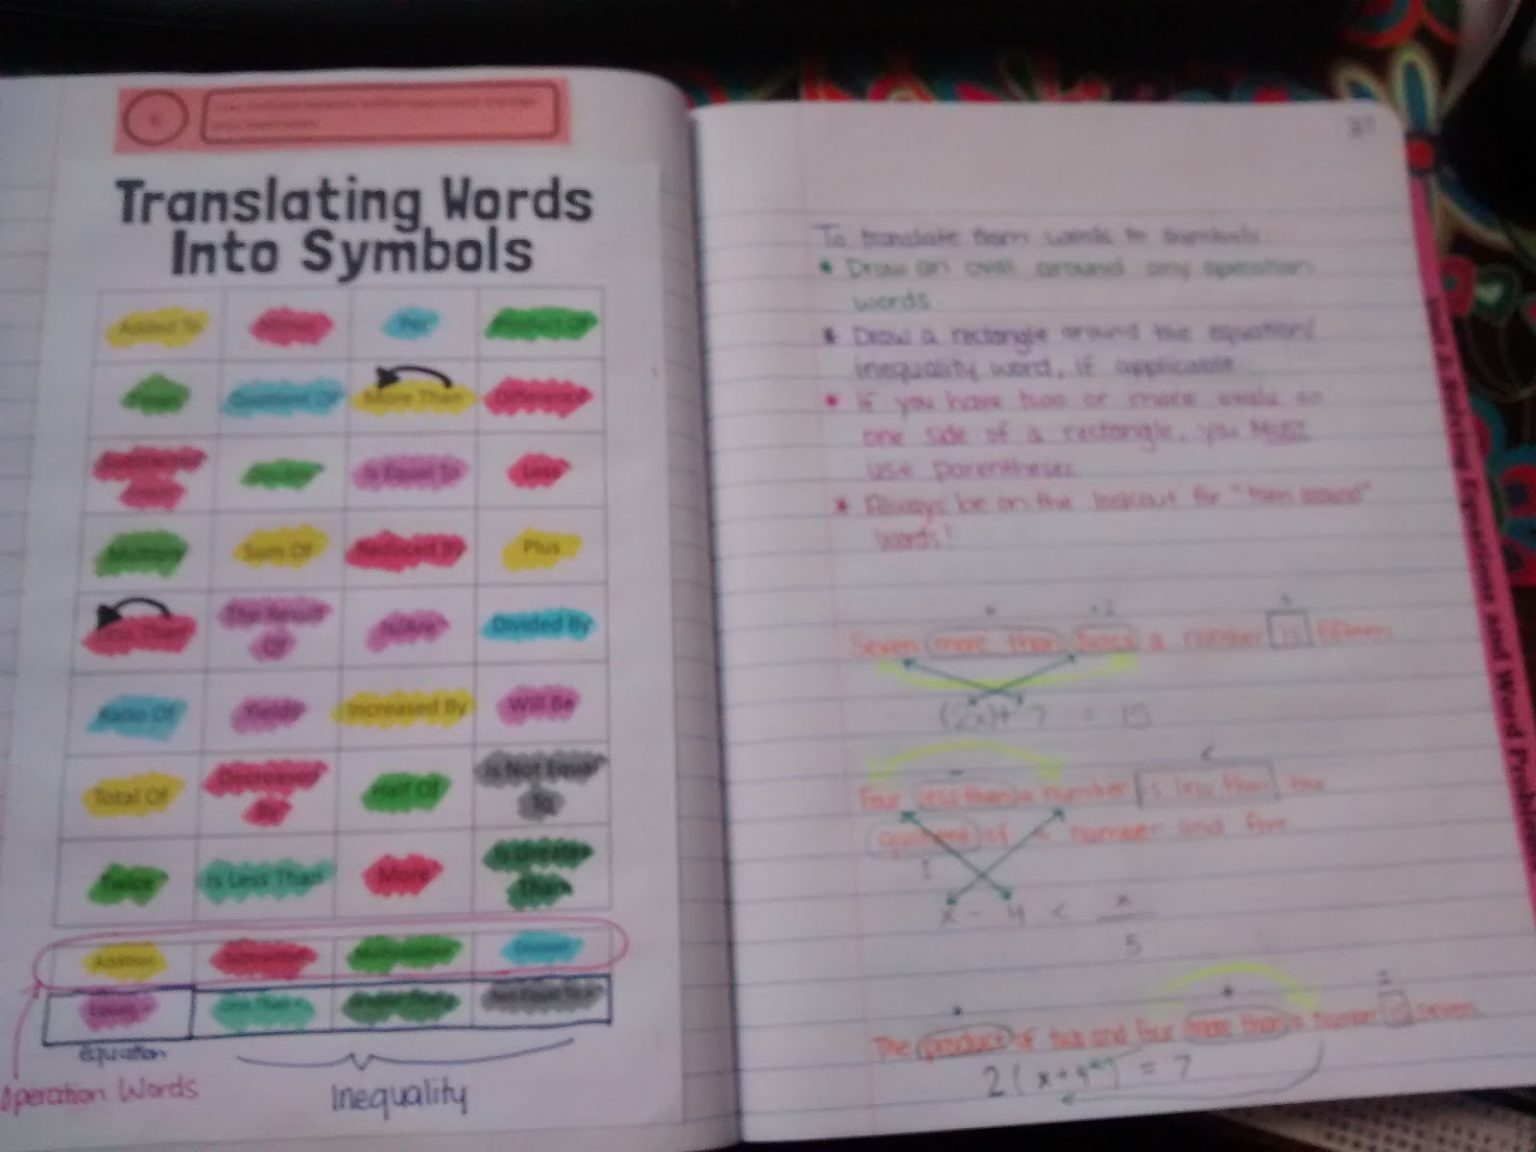 Translating Words
Into Symbols
Added To
Per
Product Of
Quotient Of
More Than
Difference
Is Equal To
Less
Multiply
Sum Of
Reduced By
Plus
Less Than
The Result
Of
Divided By
Ratio Of
Yields
Increased By
Will Be
Total Of
Decreased
By
Half Of
Is Not Equal
To
Twice
Is Less Than
More
Is Greater
Than
Addition
Subtraction
Multiplication
Division
equation
Operation Words
Inequality
To translate from words to symbols
* Draw an oval around any operation
words.
* Draw a rectangle around the equation/
inequality word, if applicable
* If you have two or more ovals on
one side of a rectangle, you MUST
use parentheses
* Always be on the lookout for "turn around"
words!
Seven more than twice a number is fifteen
(2x)+ 7 = 15
<
Four less than a number is less than the
quotient of a number and five
x - 4 < x
5
+
=
The product of two and four more than a number is seven
2(x+4) = 7
Unit 2: Solving Equations and Word Proble